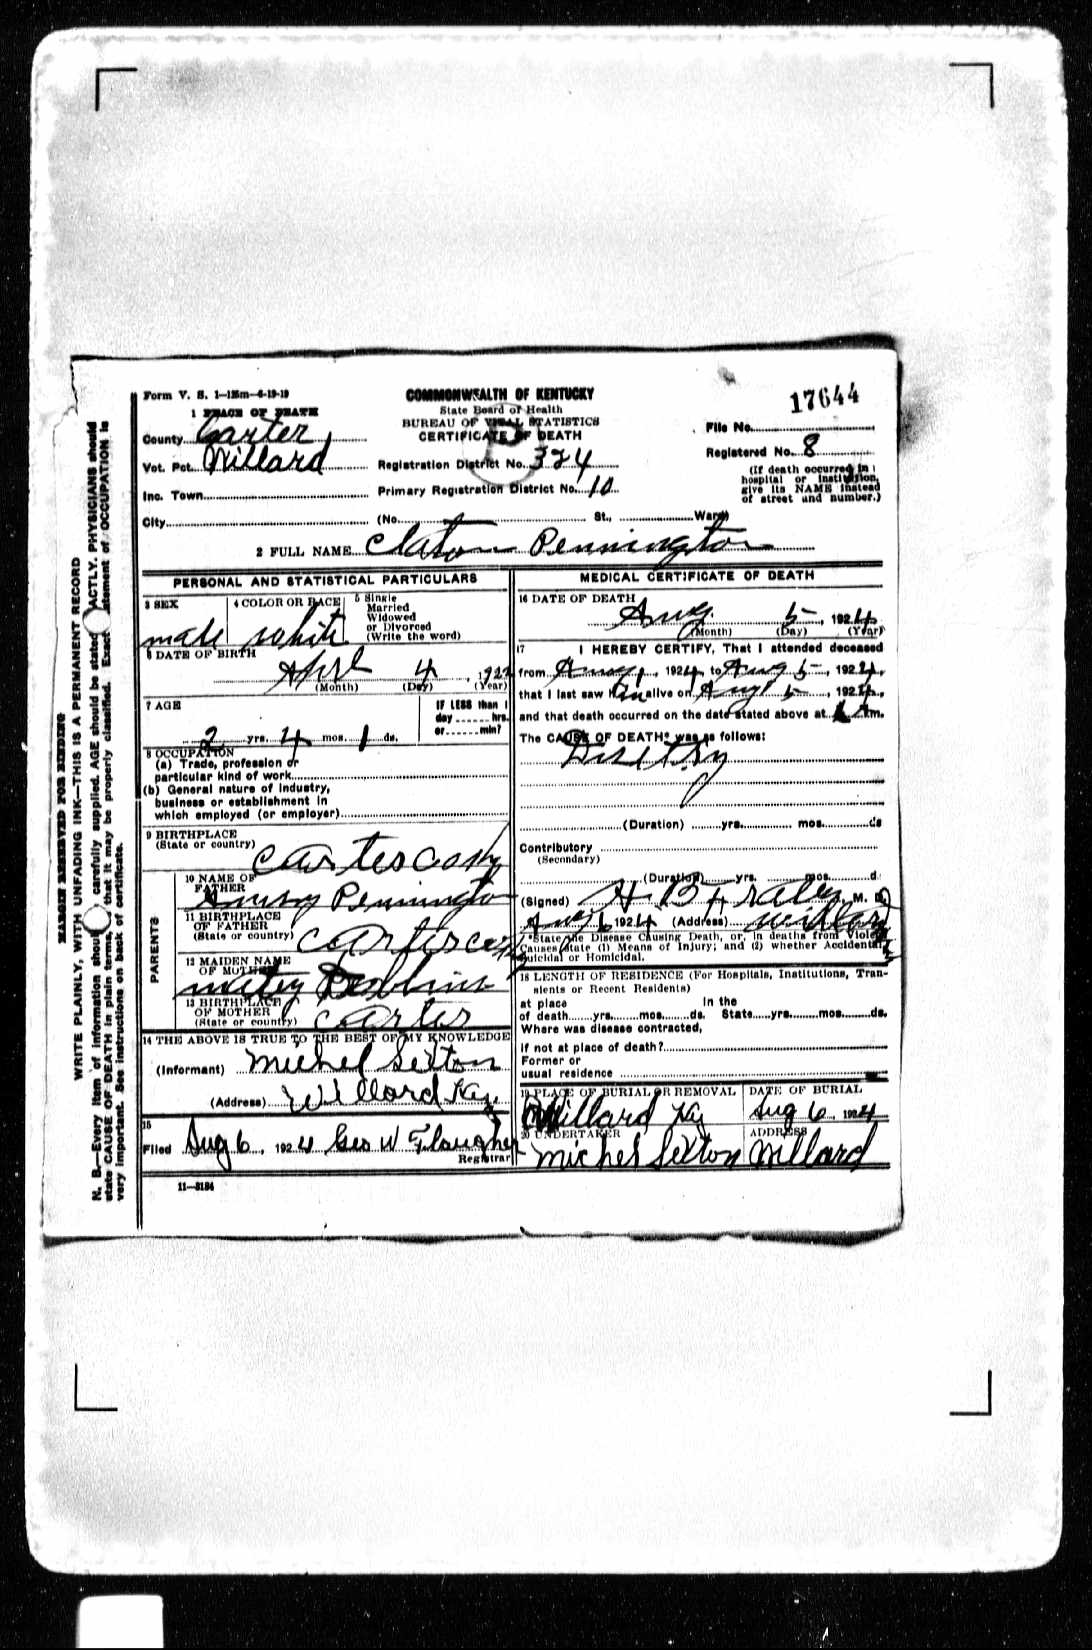 Form V. S. 1—15m—6-19-19
COMMONWEALTH OF KENTUCKY
State Board of Health
BUREAU OF VITAL STATISTICS
CERTIFICATE OF DEATH
17644
1 PLACE OF DEATH
County Carter
Vot. Pct. Willard
Inc. Town
City
Registration District No. 324
Primary Registration District No. 10
(No. St., Ward)
File No.
Registered No. 8
(If death occurred in
hospital or institution,
give its NAME instead
of street and number.)
2 FULL NAME Claton Pennington
PERSONAL AND STATISTICAL PARTICULARS
3 SEX
male
4 COLOR OR RACE
white
5 Single
Married
Widowed
or Divorced
(Write the word)
6 DATE OF BIRTH
Aprl 4, 1922
(Month) (Day) (Year)
7 AGE
2 yrs. 4 mos. 1 ds.
IF LESS than 1
day hrs.
or min?
8 OCCUPATION
(a) Trade, profession or
particular kind of work
(b) General nature of industry,
business or establishment in
which employed (or employer)
9 BIRTHPLACE
(State or country)
PARENTS
10 NAME OF
FATHER
Pennington
11 BIRTHPLACE
OF FATHER
(State or country)
12 MAIDEN NAME
OF MOTHER
13 BIRTHPLACE
OF MOTHER
(State or country) Carter
14 THE ABOVE IS TRUE TO THE BEST OF MY KNOWLEDGE
(Informant) Michel Sexton
(Address) Willard Ky.
15
Filed Aug 6, 1924 Geo W Flaugher
Registrar
11—3184
MEDICAL CERTIFICATE OF DEATH
16 DATE OF DEATH
Aug 5, 1924
(Month) (Day) (Year)
17 I HEREBY CERTIFY, That I attended deceased
from Aug 1, 1924, to Aug 5, 1924,
that I last saw him alive on Aug 5, 1924,
and that death occurred on the date stated above at m.
The CAUSE OF DEATH* was as follows:
(Duration) yrs. mos. ds
Contributory
(Secondary)
(Duration) yrs. mos. d
(Signed) H B Frales M. D.
Aug 6 1924 (Address) Willard
*State the Disease Causing Death, or, in deaths from Violent
Causes state (1) Means of Injury; and (2) whether Accidental,
Suicidal or Homicidal.
18 LENGTH OF RESIDENCE (For Hospitals, Institutions, Tran-
sients or Recent Residents)
at place In the
of death yrs. mos. ds. State yrs. mos. ds.
Where was disease contracted,
if not at place of death?
Former or
usual residence
19 PLACE OF BURIAL OR REMOVAL
Willard Ky
DATE OF BURIAL
Aug 6 1924
20 UNDERTAKER
Michel Sexton
ADDRESS
Willard
MARGIN RESERVED FOR BINDING
WRITE PLAINLY, WITH UNFADING INK—THIS IS A PERMANENT RECORD
N. B.—Every item of information should be carefully supplied. AGE should be stated EXACTLY. PHYSICIANS should
state CAUSE OF DEATH in plain terms, that it may be properly classified. Exact statement of OCCUPATION is
very important. See instructions on back of certificate.